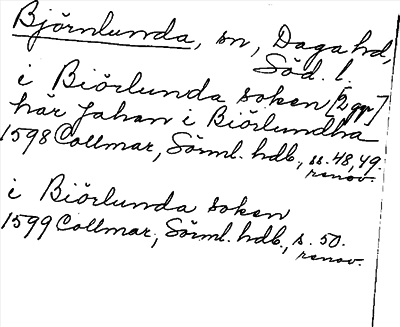 Björnlunda, sn, Daga hd,
Söd. l.
i Biörlunda soken [2 ggr]
här Jahan i Biörlundha
1598 Collmar, Sörml. hdb., ss. 48, 49.
renov.
i Biörlunda soken
1599 Collmar, Sörml. hdb., s. 50.
renov.